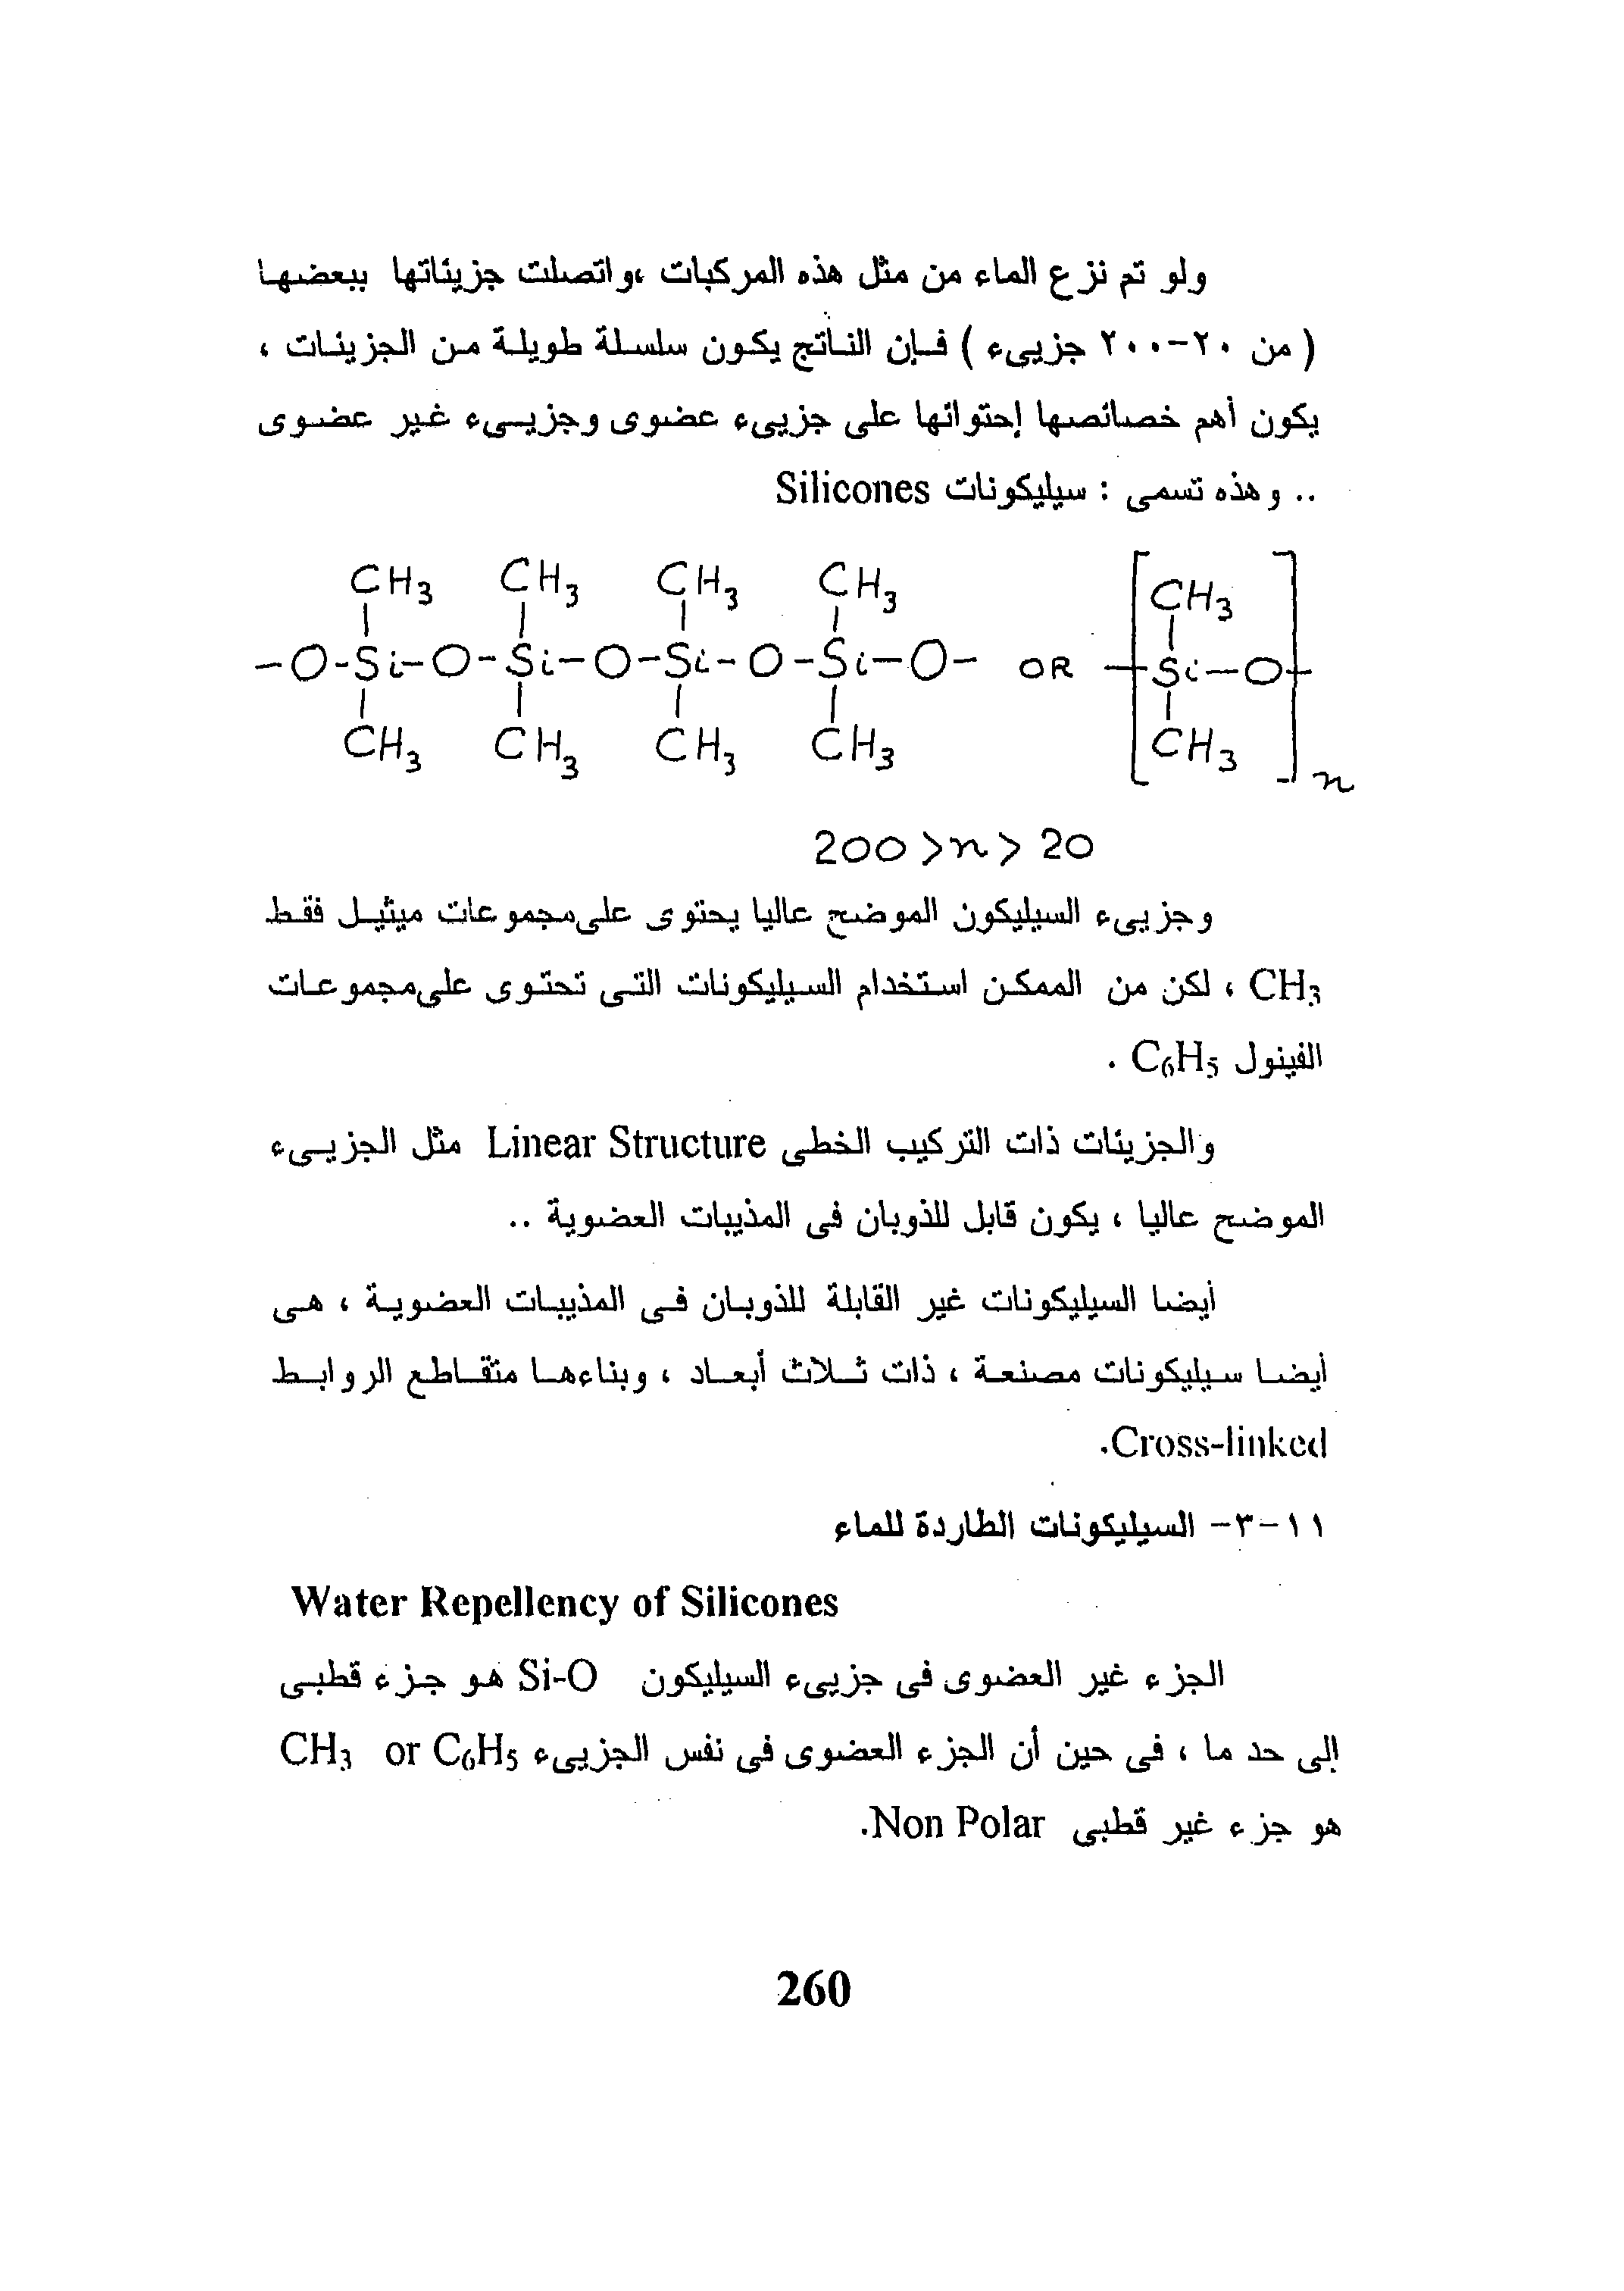 ولو تم نزع الماء من مثل هذه المركبات ،واتصلت جزيئاتها ببعضها
( من ٢٠-٢٠٠ جزيىء ) فإن الناتج يكون سلسلة طويلة من الجزيئات ،
يكون أهم خصائصها إحتوائها على جزيىء عضوى وجزيىء غير عضوى
.. وهذه تسمى : سيليكونات Silicones
CH3 CH3 CH3 CH3 CH3
-O-Si-O-Si-O-Si-O-Si-O- OR -Si-O-
CH3 CH3 CH3 CH3 CH3
n
200 >n> 20
وجزيىء السيليكون الموضح عاليا يحتوى على مجموعات ميثيل فقط
CH3 ، لكن من الممكن استخدام السيليكونات التى تحتوى على مجموعات
الفينول C6H5 .
والجزيئات ذات التركيب الخطى Linear Structure مثل الجزيىء
الموضح عاليا ، يكون قابل للذوبان فى المذيبات العضوية ..
أيضا السيليكونات غير القابلة للذوبان فى المذيبات العضوية ، هى
أيضا سيليكونات مصنعة ، ذات ثلاث أبعاد ، وبناءها متقاطع الروابط
Cross-linked.
١١-٣- السيليكونات الطاردة للماء
Water Repellency of Silicones
الجزء غير العضوى فى جزيىء السيليكون Si-O هو جزء قطبى
إلى حد ما ، فى حين أن الجزء العضوى فى نفس الجزيىء CH3 or C6H5
هو جزء غير قطبى Non Polar.
260